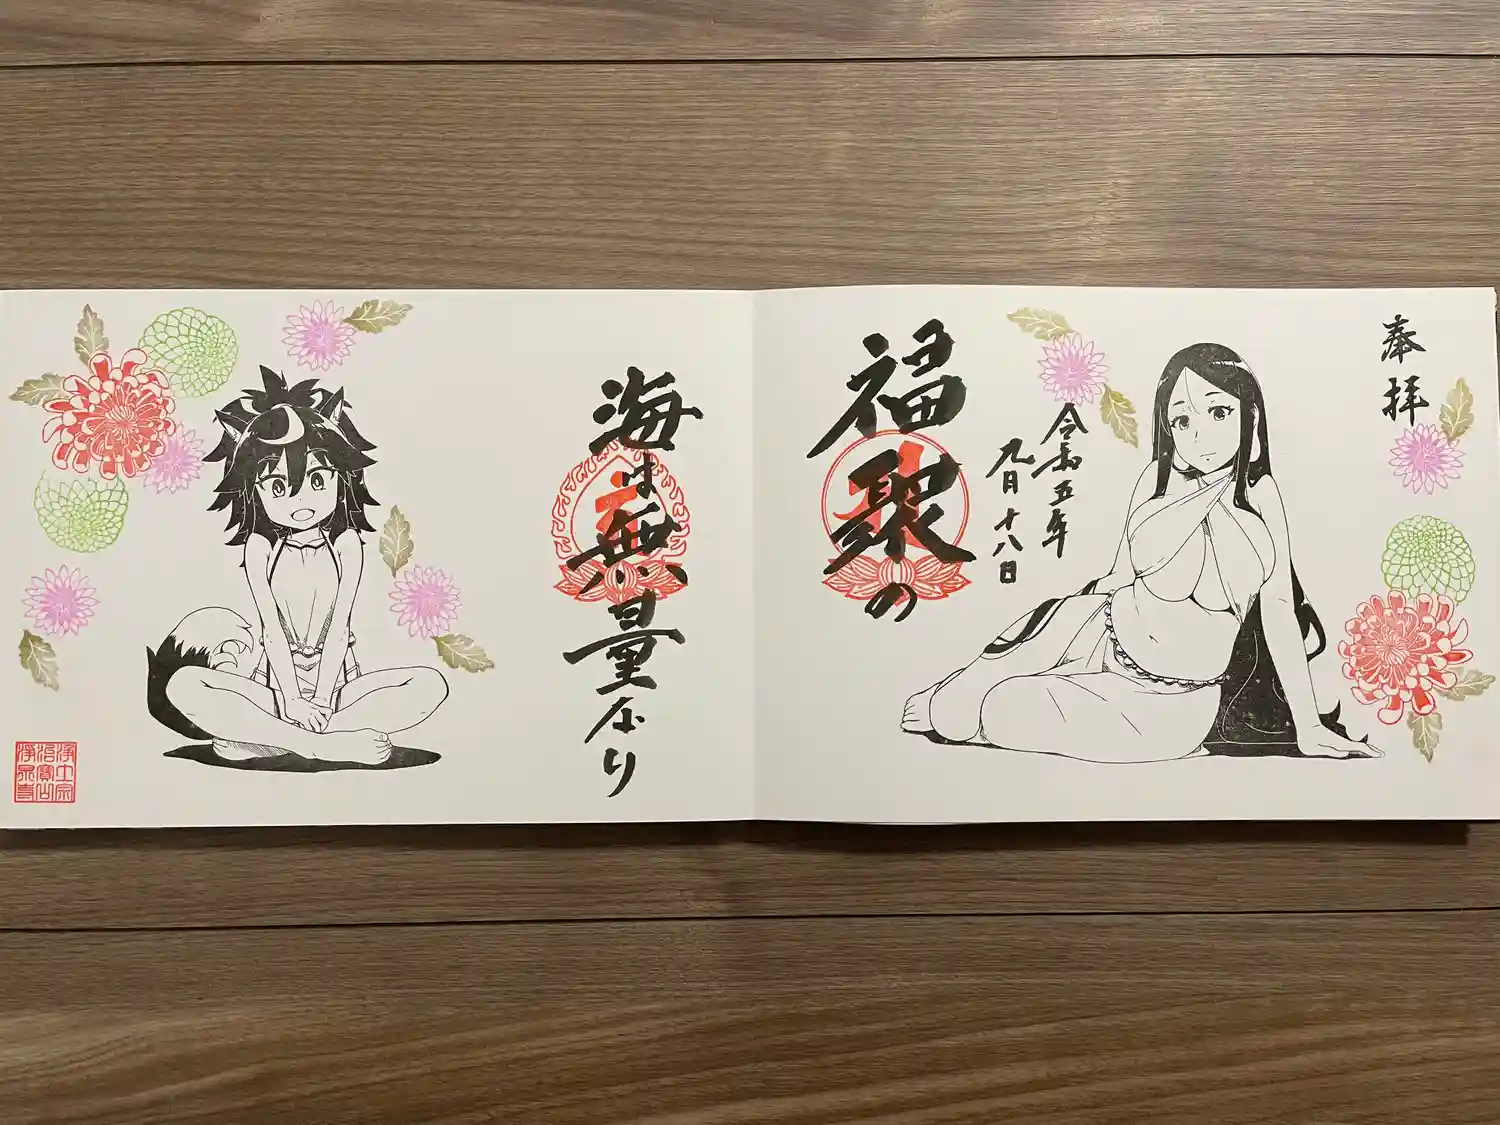 奉拝
令和五年
九月十八日
福聚の
海は無量なり
浄土宗
治寶山
浄泉寺